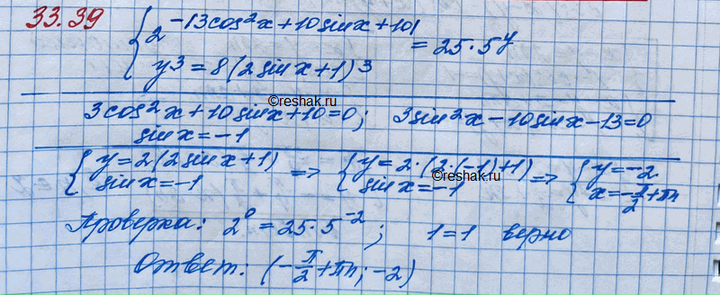 33.39 { 2^-|3cos²x+10sinx+10| = 25·5^y
y³=8(2sinx+1)³
©reshak.ru
3cos²x+10sinx+10=0; 3sin²x-10sinx-13=0
sinx=-1
{ y=2(2sinx+1) => { y=2·(2·(-1)+1) => { y=-2
sinx=-1 sinx=-1 x=-π/2+πn
©reshak.ru
Проверка: 2⁰=25·5⁻²; 1=1 верно
Ответ: (-π/2+πn; -2)